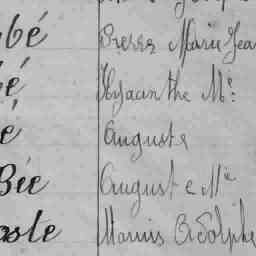 bé Pierre Marie Jea
é Hyacinthe Me:
é Auguste
Bée August e Mie
aste Marius Adolphe